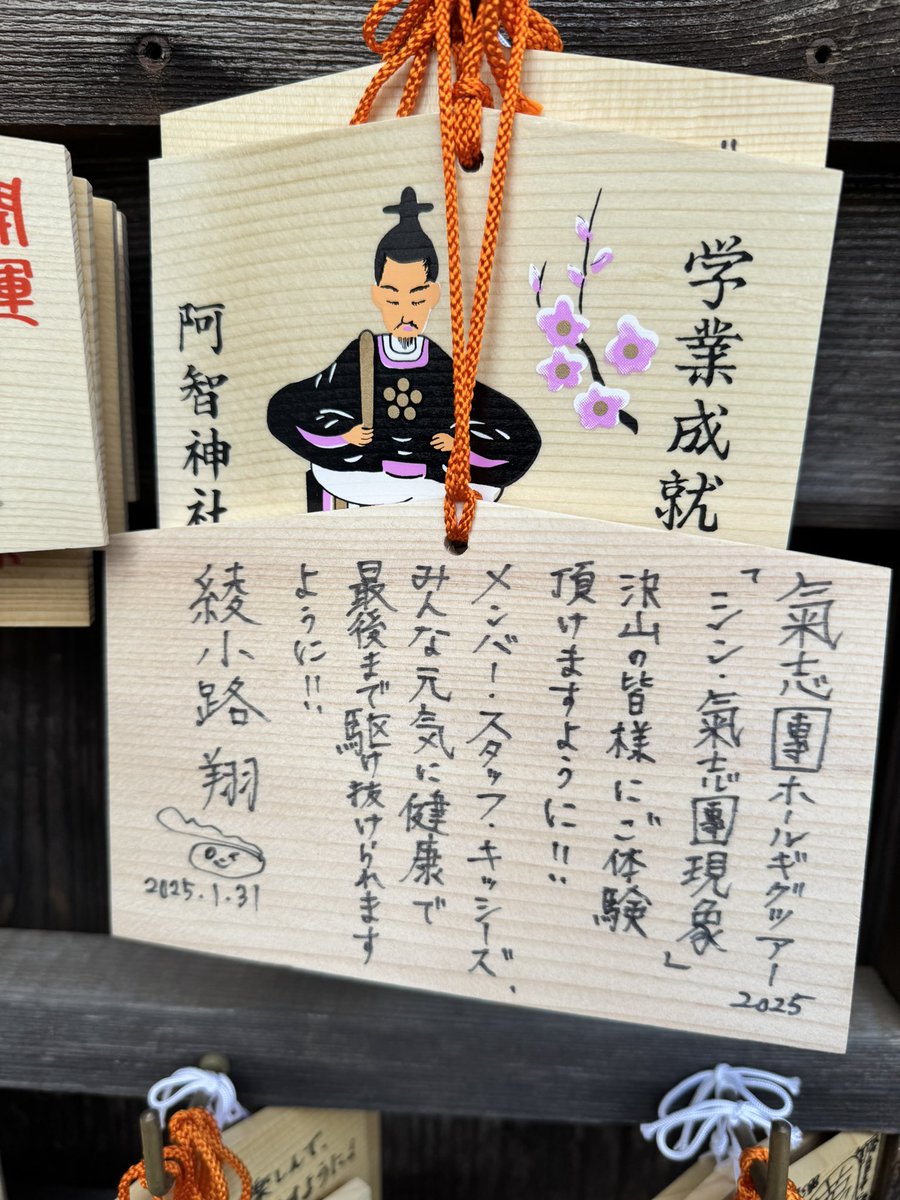 学業成就
阿智神社
開運
氣志團ホールギグツアー
2025
「シン・氣志團現象」
沢山の皆様にご体験
頂けますように!!
メンバー・スタッフ・キッシーズ、
みんな元気に健康で
最後まで駆け抜けられます
ように!!
綾小路 翔
2025.1.31